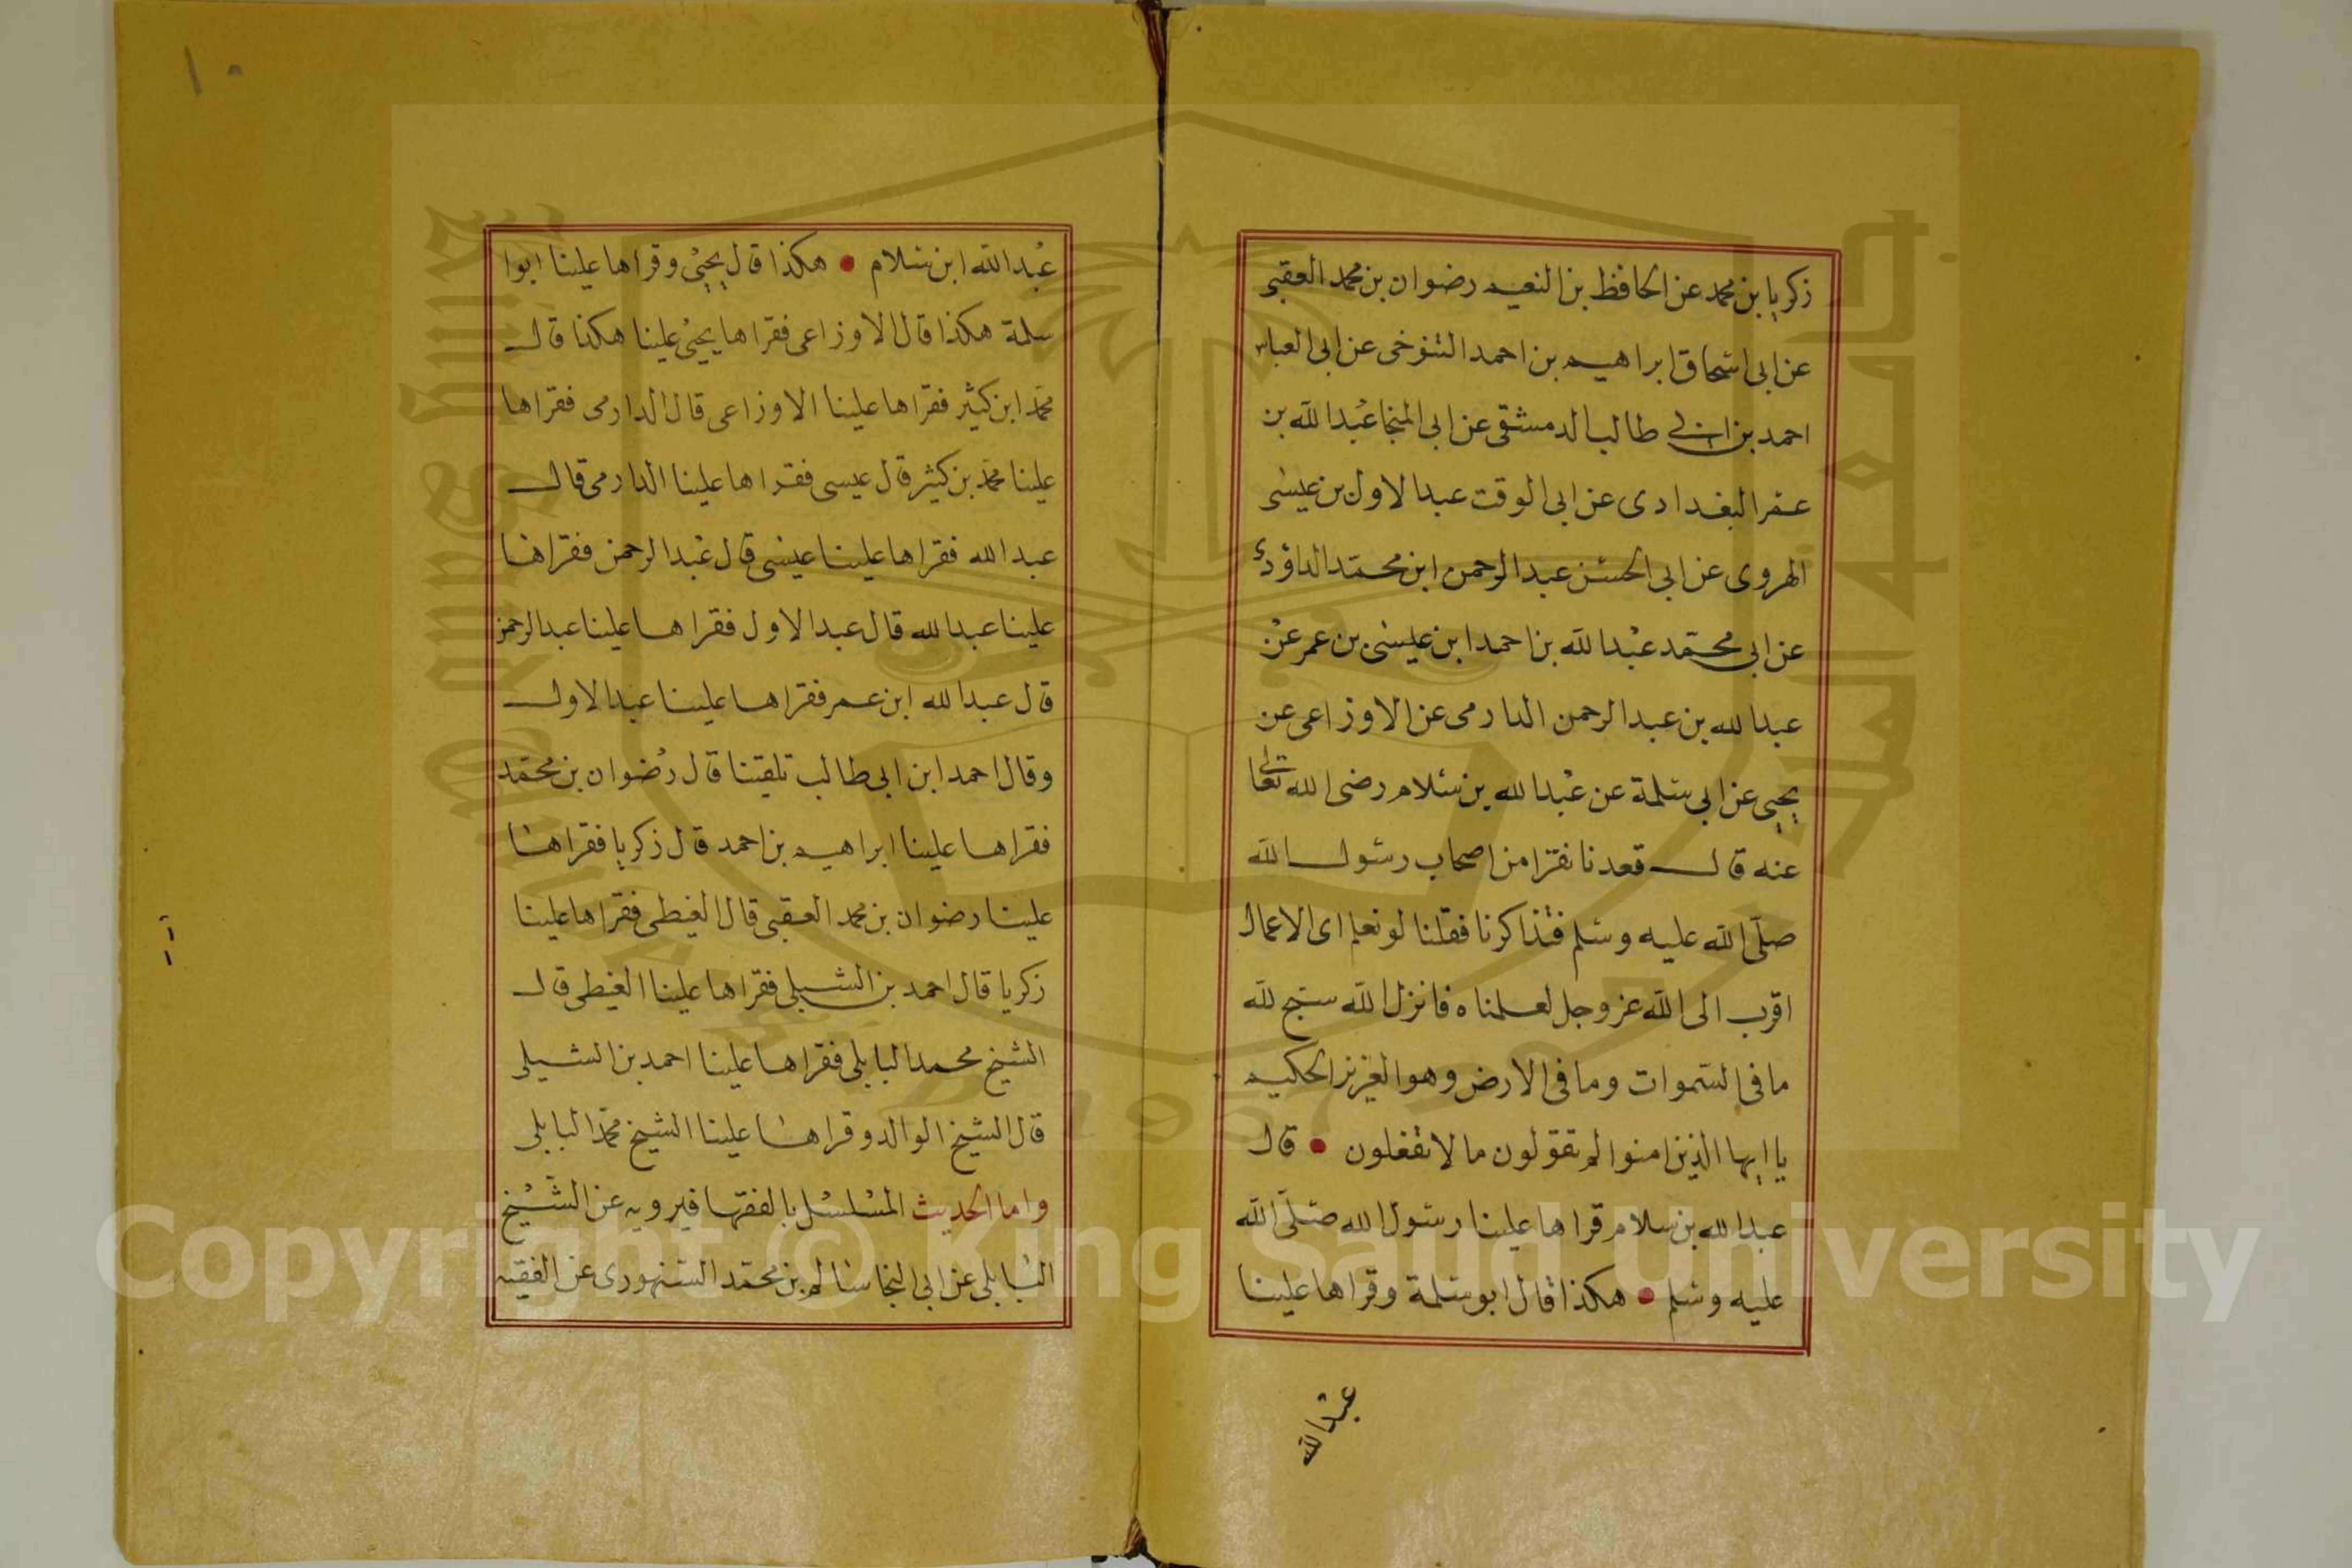 زكريا بن محمد عن الحافظ بن النعيم رضوان بن محمد العقبى
عن ابى اسحاق ابراهيم بن احمد التنوخى عن ابى العباس
احمد بن ابى طالب الدمشقى عن ابى المنجا عبد الله بن
عمر البغدادى عن ابى الوقت عبد الاول بن عيسى
الهروى عن ابى الحسن عبد الرحمن ابن محمد الداؤدى
عن ابى محمد عبد الله بن احمد ابن عيسى بن عمر عن
عبد الله بن عبد الرحمن الدارمى عن الاوزاعى عن
يحيى عن ابى سلمة عن عبد الله بن سلام رضى الله تعالى
عنه قال قعدنا نفرا من اصحاب رسول الله
صلى الله عليه وسلم فتذاكرنا فقلنا لو نعلم اى الاعمال
اقرب الى الله عز وجل لعملناه فانزل الله سبح لله
ما فى السموات وما فى الارض وهو العزيز الحكيم
يا ايها الذين امنوا لم تقولون ما لا تفعلون • قال
عبد الله بن سلام قراها علينا رسول الله صلى الله
عليه وسلم • هكذا قال ابو سلمة وقراها علينا
عبد الله
١٠
عبد الله ابن سلام • هكذا قال يحيى وقراها علينا ابوا
سلمة هكذا قال الاوزاعى فقراها يحيى علينا هكذا قال
محمد ابن كثير فقراها علينا الاوزاعى قال الدارمى فقراها
علينا محمد بن كثير قال عيسى فقراها علينا الدارمى قال
عبد الله فقراها علينا عيسى قال عبد الرحمن فقراها
علينا عبد الله قال عبد الاول فقراها علينا عبد الرحمن
قال عبد الله ابن عمر فقراها علينا عبد الاول
وقال احمد ابن ابى طالب تلقتنا قال رضوان بن محمد
فقراها علينا ابراهيم بن احمد قال زكريا فقراها
علينا رضوان بن محمد العقبى قال الغيطى فقراها علينا
زكريا قال احمد بن الشبلى فقراها علينا الغيطى قال
الشيخ محمد البابلى فقراها علينا احمد بن الشبلى
قال الشيخ الوالد وقراها علينا الشيخ محمد البابلى
واما الحديث المسلسل بالفقها فيرويه عن الشيخ
البابلى عن ابى النجا سالم بن محمد السنهورى عن الفقيه
Copyright © King Saud University